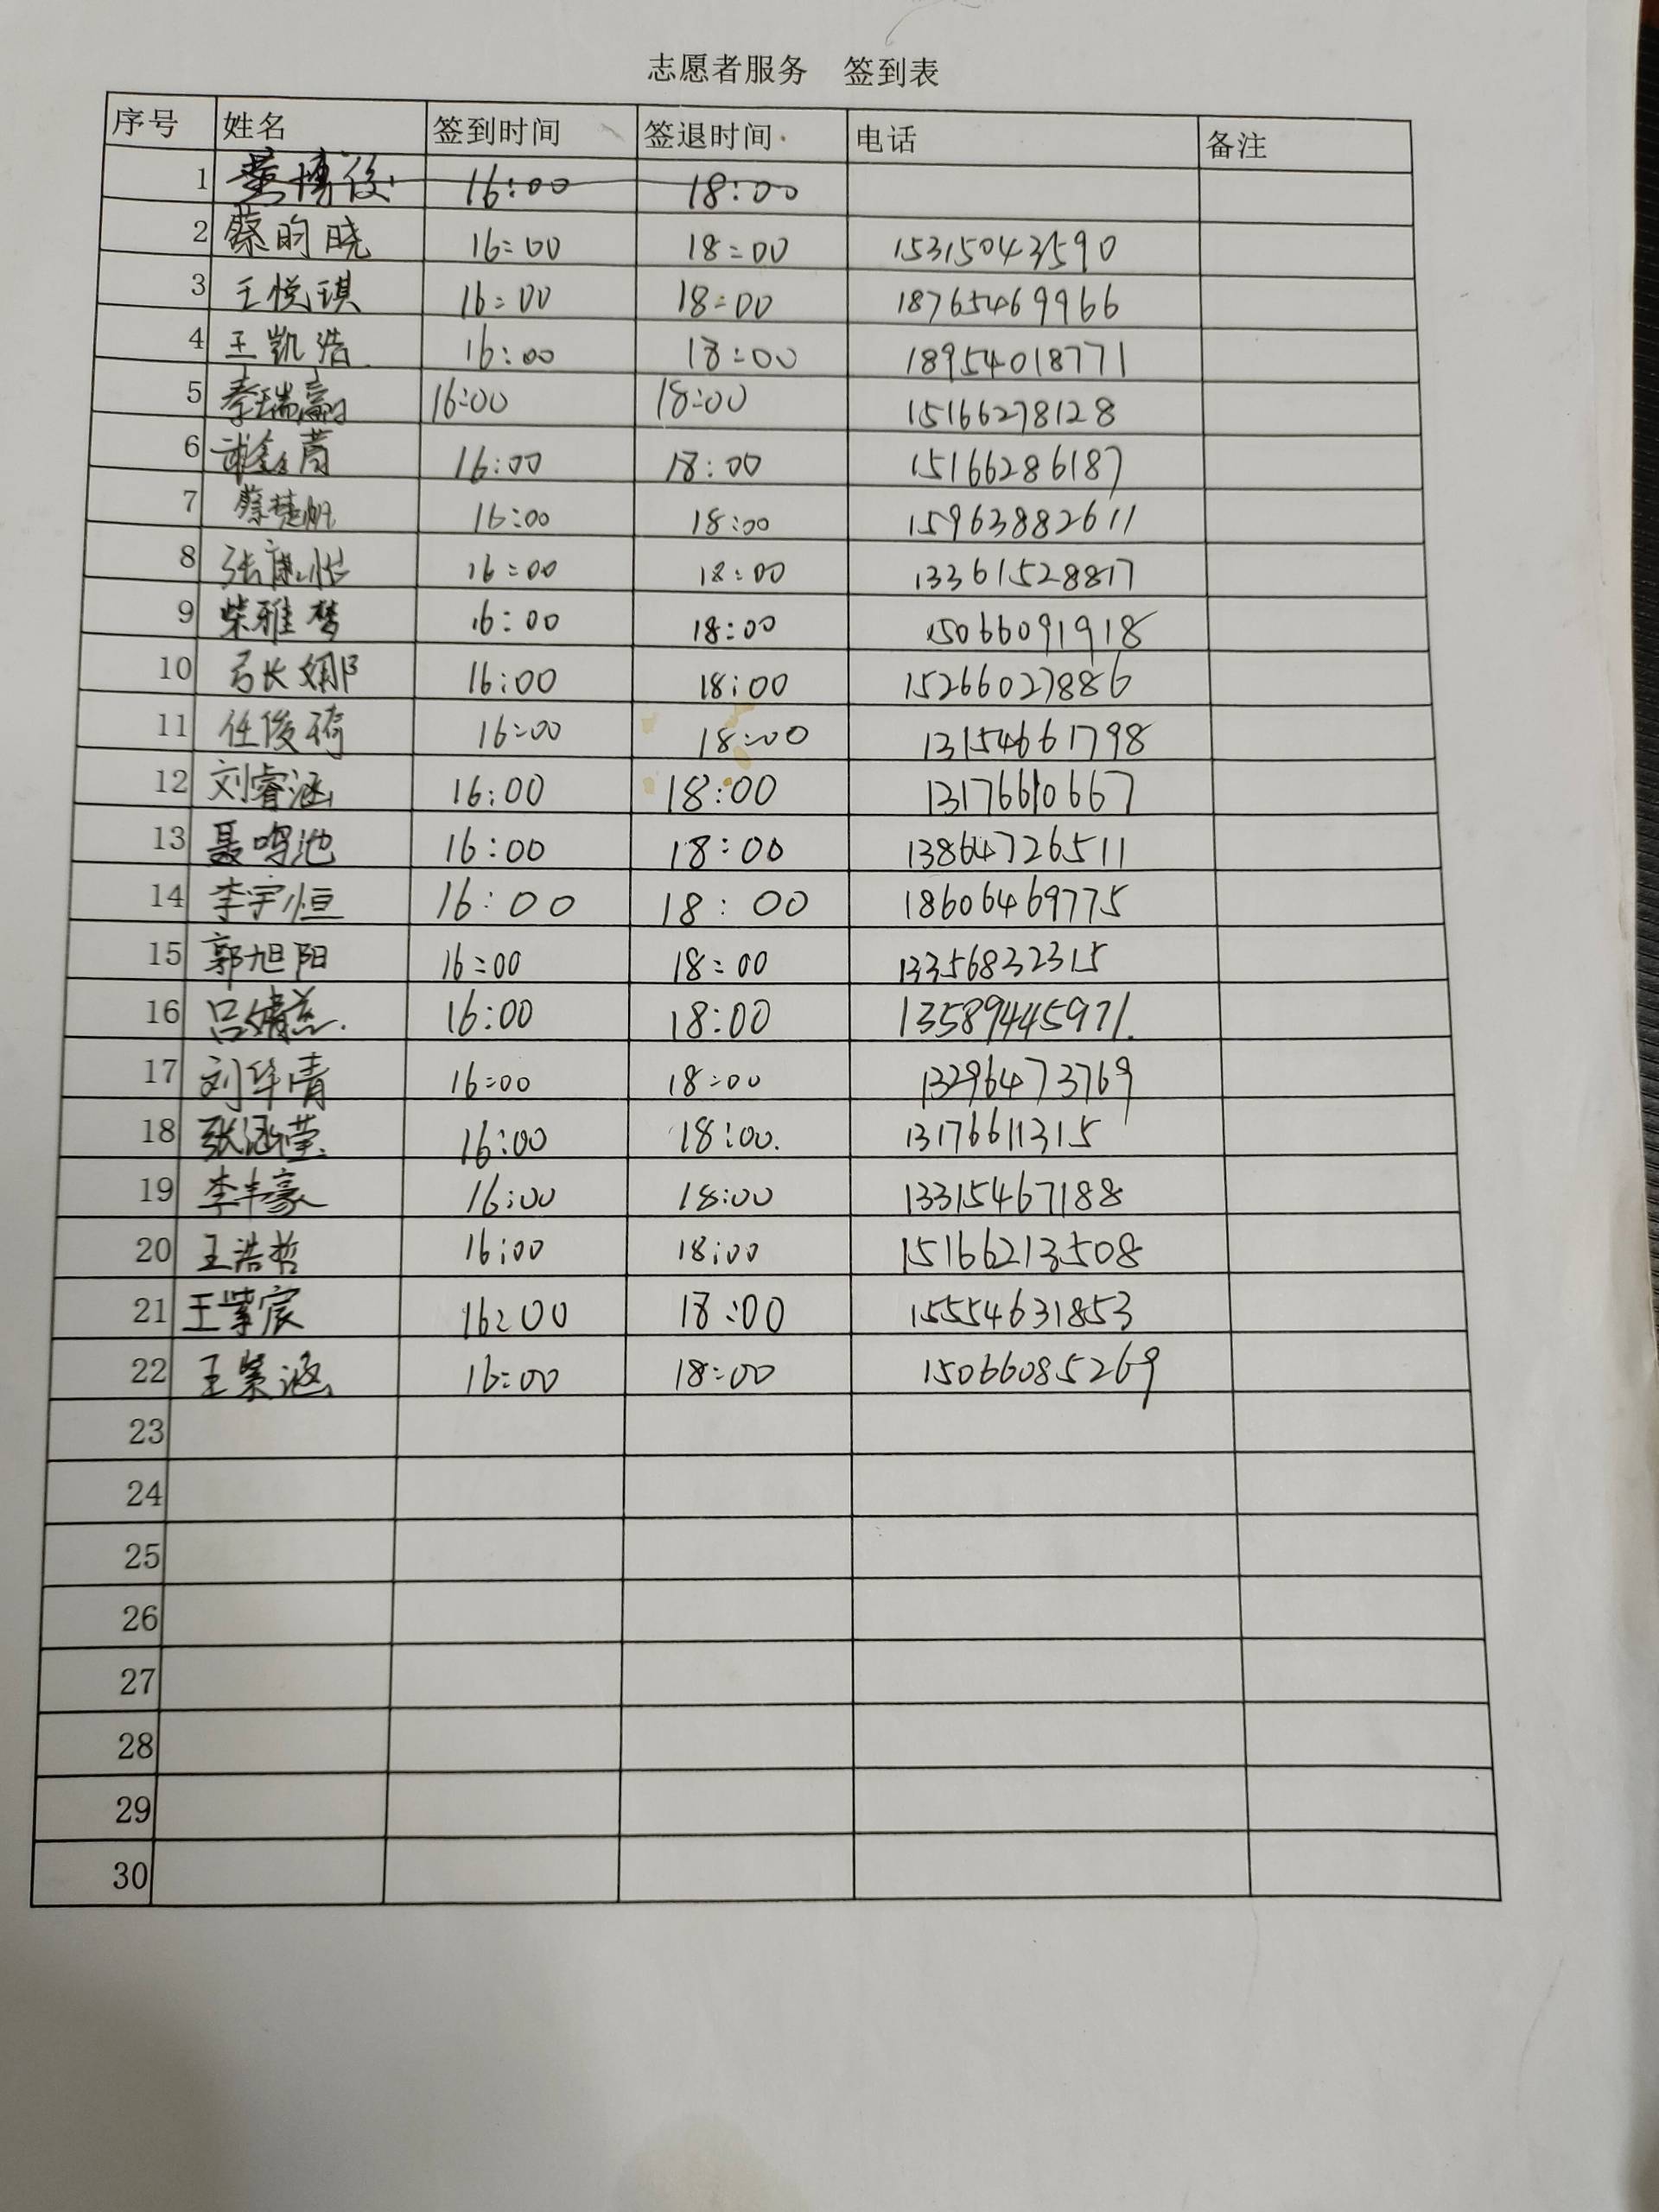 志愿者服务 签到表
序号 姓名 签到时间 签退时间 电话 备注
1 董博俊 16:00 18:00
2 蔡昀晓 16:00 18:00 15315043590
3 王悦琪 16:00 18:00 18765469966
4 王凯浩 16:00 18:00 18954018771
5 李瑞嬴 16:00 18:00 15166278128
6 16:00 18:00 15166286187
7 蔡楚帆 16:00 18:00 15963882611
8 16:00 18:00 13361528817
9 柴雅梦 16:00 18:00 15066091918
10 张娜 16:00 18:00 15266027886
11 任俊琦 16:00 18:00 13154661798
12 刘睿涵 16:00 18:00 13176610667
13 聂鸣池 16:00 18:00 13864726511
14 李宇恒 16:00 18:00 18606469775
15 郭旭阳 16:00 18:00 13356832315
16 吕婧慈 16:00 18:00 13589445971
17 刘华清 16:00 18:00 13296473769
18 张涵莹 16:00 18:00 13176611315
19 李丰豪 16:00 18:00 13315467188
20 王浩哲 16:00 18:00 15166213508
21 王紫宸 16:00 18:00 15554631853
22 王紫涵 16:00 18:00 15066085269
23
24
25
26
27
28
29
30